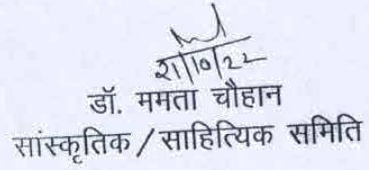 21/10/22
डॉ. ममता चौहान
सांस्कृतिक / साहित्यिक समिति